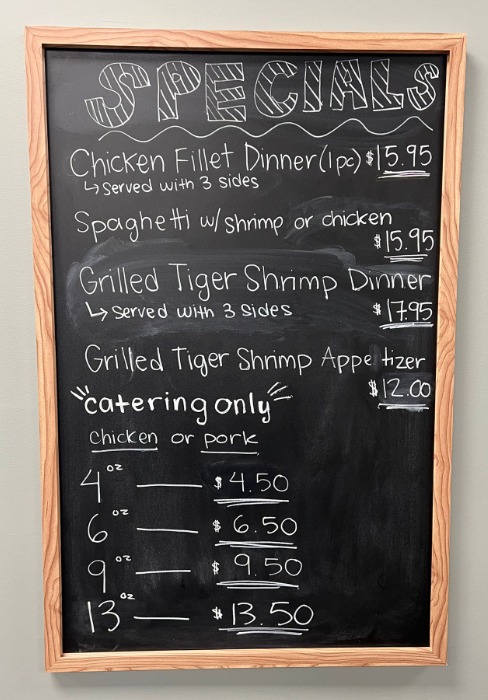 SPECIALS
Chicken Fillet Dinner (1 pc) $15.95
↳ Served with 3 sides
Spaghetti w/ shrimp or chicken
$15.95
Grilled Tiger Shrimp Dinner
↳ Served with 3 sides $17.95
Grilled Tiger Shrimp Appetizer
$12.00
"catering only"
chicken or pork
4 oz — $4.50
6 oz — $6.50
9 oz — $9.50
13 oz — $13.50